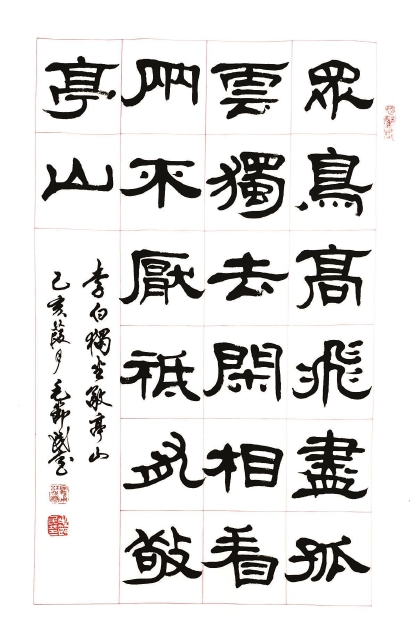 眾鳥高飛盡孤
雲獨去閑相看
兩不厭祗有敬
亭山
李白獨坐敬亭山
己亥葭月毛